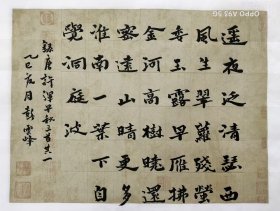 OPPO A93 5G
遥夜泛清瑟西
風生翠蘿殘螢
委玉露早雁拂
金河高樹曉還
密遠山晴更多
淮南一葉下自
覺洞庭波
錄唐許渾早秋三首其一
乙巳夏月彭雲峰